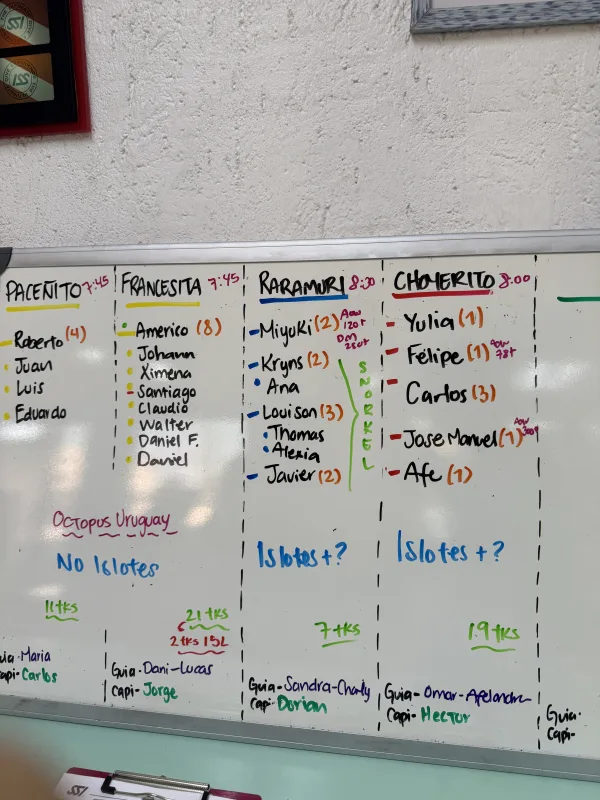 SSI
SSI
PACEÑITO 7:45
Roberto (4)
Juan
Luis
Eduardo
FRANCESITA 7:45
Americo (8)
Johann
Ximena
Santiago
Claudio
Walter
Daniel F.
Daniel
Octopus Uruguay
No Islotes
11 tks
21 tks
2 tks 15L
Guia - Maria
Capi - Carlos
Guia - Dani - Lucas
Capi - Jorge
RARAMURI 8:30
Miyuki (2) AOW
120t
DM
Kryns (2)
Ana
Louison (3)
Thomas
Alexia
Javier (2)
SNORKEL
Islotes + ?
7 tks
Guia - Sandra - Charly
Capi - Dorian
CHOYERITO 8:00
Yulia (1)
Felipe (1) AOW
78t
Carlos (3)
Jose Manuel (1) AOW
Afe (1)
Islotes + ?
19 tks
Guia - Omar -
Capi - Hector
Guia -
Capi -
SSI